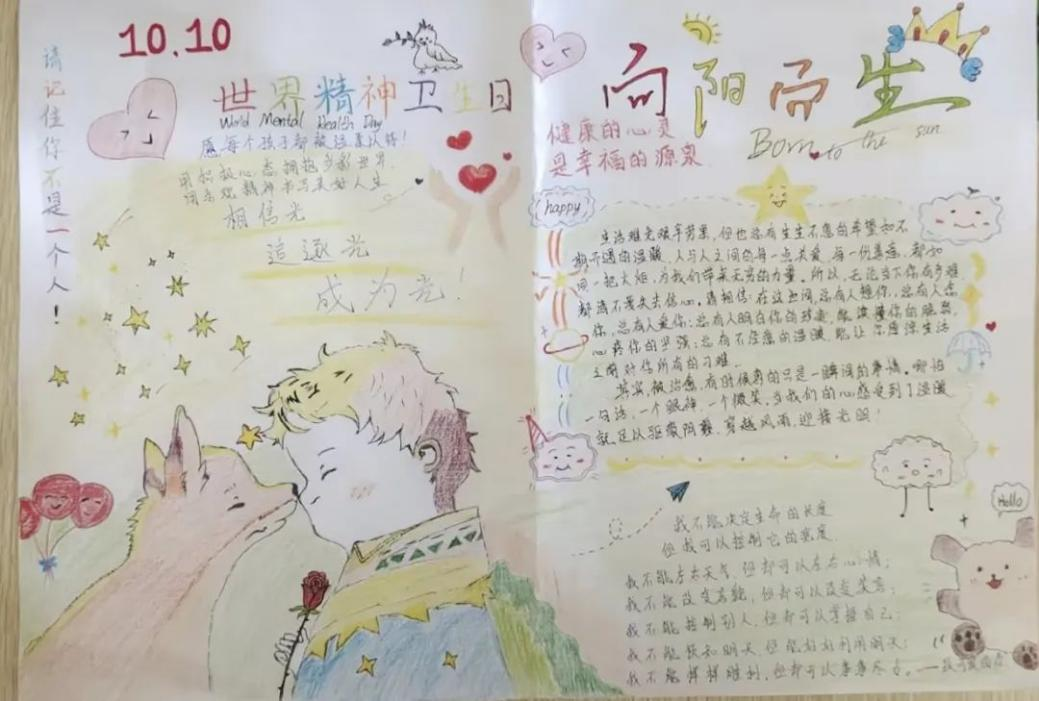 请记住你不是一个人！
10.10
世界精神卫生日
World Mental Health Day
愿每个孩子都被温柔以待！
用积极心态拥抱多彩世界
用乐观精神书写美好人生
相信光
追逐光
成为光！
向阳而生
Born to the sun
健康的心灵
是幸福的源泉
happy
生活难免艰辛劳累，但也总有生生不息的希望和不
期而遇的温暖。人与人之间的每一点关爱，每一份善意，都如
同一把火炬，为我们带来无穷的力量。所以，无论当下你有多难
都请不要失去信心。请相信：在这世间，总有人想你，总有人念
你，总有人爱你；总有人明白你的珍贵，
心疼你的坚强；总有不经意的温暖，能让你原谅生活
之前对你所有的刁难。
其实，被治愈，有时候真的只是一瞬间的事情。哪怕
一句话，一个眼神，一个微笑，当我们的心感受到了温暖
就足以驱散阴霾，穿越风雨，迎接光明！
我不能决定生命的长度
但我可以控制它的宽度
我不能左右天气，但却可以左右心情；
我不能改变容貌，但却可以改变笑容；
我不能控制别人，但却可以掌握自己；
我不能预知明天，但能好好利用明天；
我不能样样胜利，但却可以事事尽力。
Hello